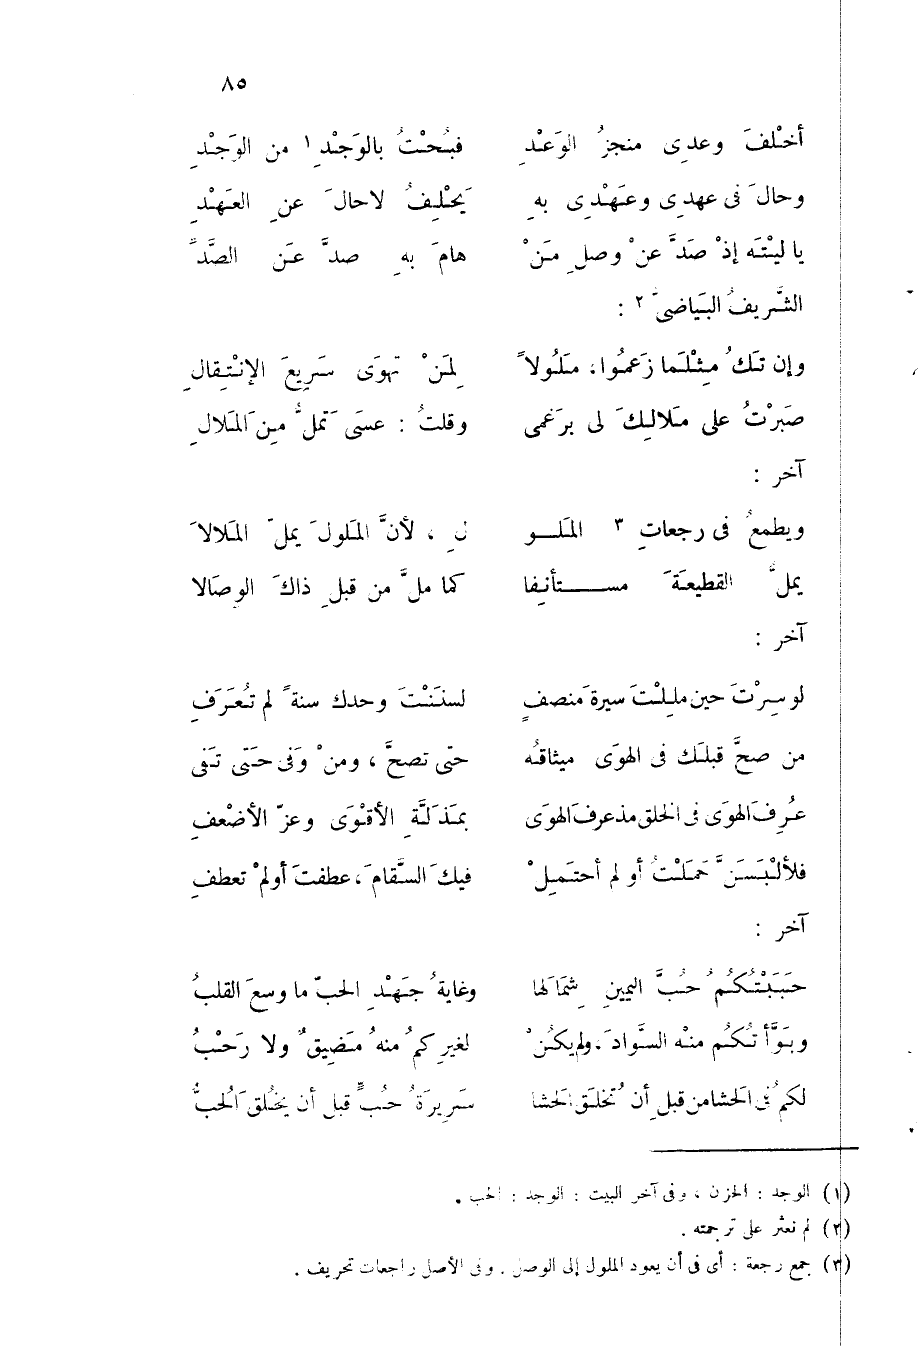 ٨٥
أخْلفَ وعدى منجزُ الوَعْدِ فبُحْتُ بالوَجْدِ ١ من الوَجْدِ
وحالَ فى عهدِى وعَهْدِى بهِ يَحْلِفُ لاحالَ عن العَهْدِ
يا ليْتَه إذْ صَدَّ عنْ وصلِ مَنْ هامَ بهِ صدَّ عَن الصَّدِّ
الشَّريفُ البَياضىّ ٢ :
وإن تَكُ مِثْلَما زَعمُوا، مَلُولاً لِمَنْ تَهوَى سَرِيعَ الإنْتِقالِ
صبَرْتُ على مَلالِكَ لى برَغمى وقلتُ : عسَى تَملُّ مِن المَلالِ
آخر :
ويطمعُ فى رجعاتِ ٣ المَلو لِ ، لأنَّ المَلولَ يملّ المَلالاَ
يملُّ القطيعَةَ مستأنِفا كما ملَّ من قبلِ ذاكَ الوِصَالا
آخر :
لو سِرْتَ حين مَلِلْتَ سيرةَ منصفٍ لسنَنْتَ وحدك سنةً لم تُعرَفِ
من صحَّ قبلَك فى الهوَى ميثاقُه حتى تصحَّ ، ومنْ وَفى حتَى تَفى
عُرِفَ الهوَى فى الخلق مذ عرف الهوَى بمَذَلَّةِ الأقْوَى وعزّ الأضْعفِ
فلألْبَسَنَّ حَمَلْتُ أو لم أحتَمِلْ فيكَ السَّقامَ، عطفتَ أولمْ تعطفِ
آخر :
حَبَبْتُكُمُ حُبَّ اليمينِ شِمَالَها وغايةُ جَهْدِ الحبّ ما وسعَ القلبُ
وبَوَّأتُكُم منْه السَّوادَ. ولم يكُنْ لغيرِكمُ منهُ مَضيقٌ ولا رَحْبُ
لكمُ فى الحَشا من قبلِ أن تُخلَق الحَشا سَرِيرَةُ حُبٍّ قبل أن يخُلقَ الحُبُّ
(١) الوجد : الحزن ، وفى آخر البيت : الوجد : الحب .
(٢) لم نعثر على ترجمته .
(٣) جمع رجعة : أى فى أن يعود الملول إلى الوصل . وفى الأصل راجعات تحريف .